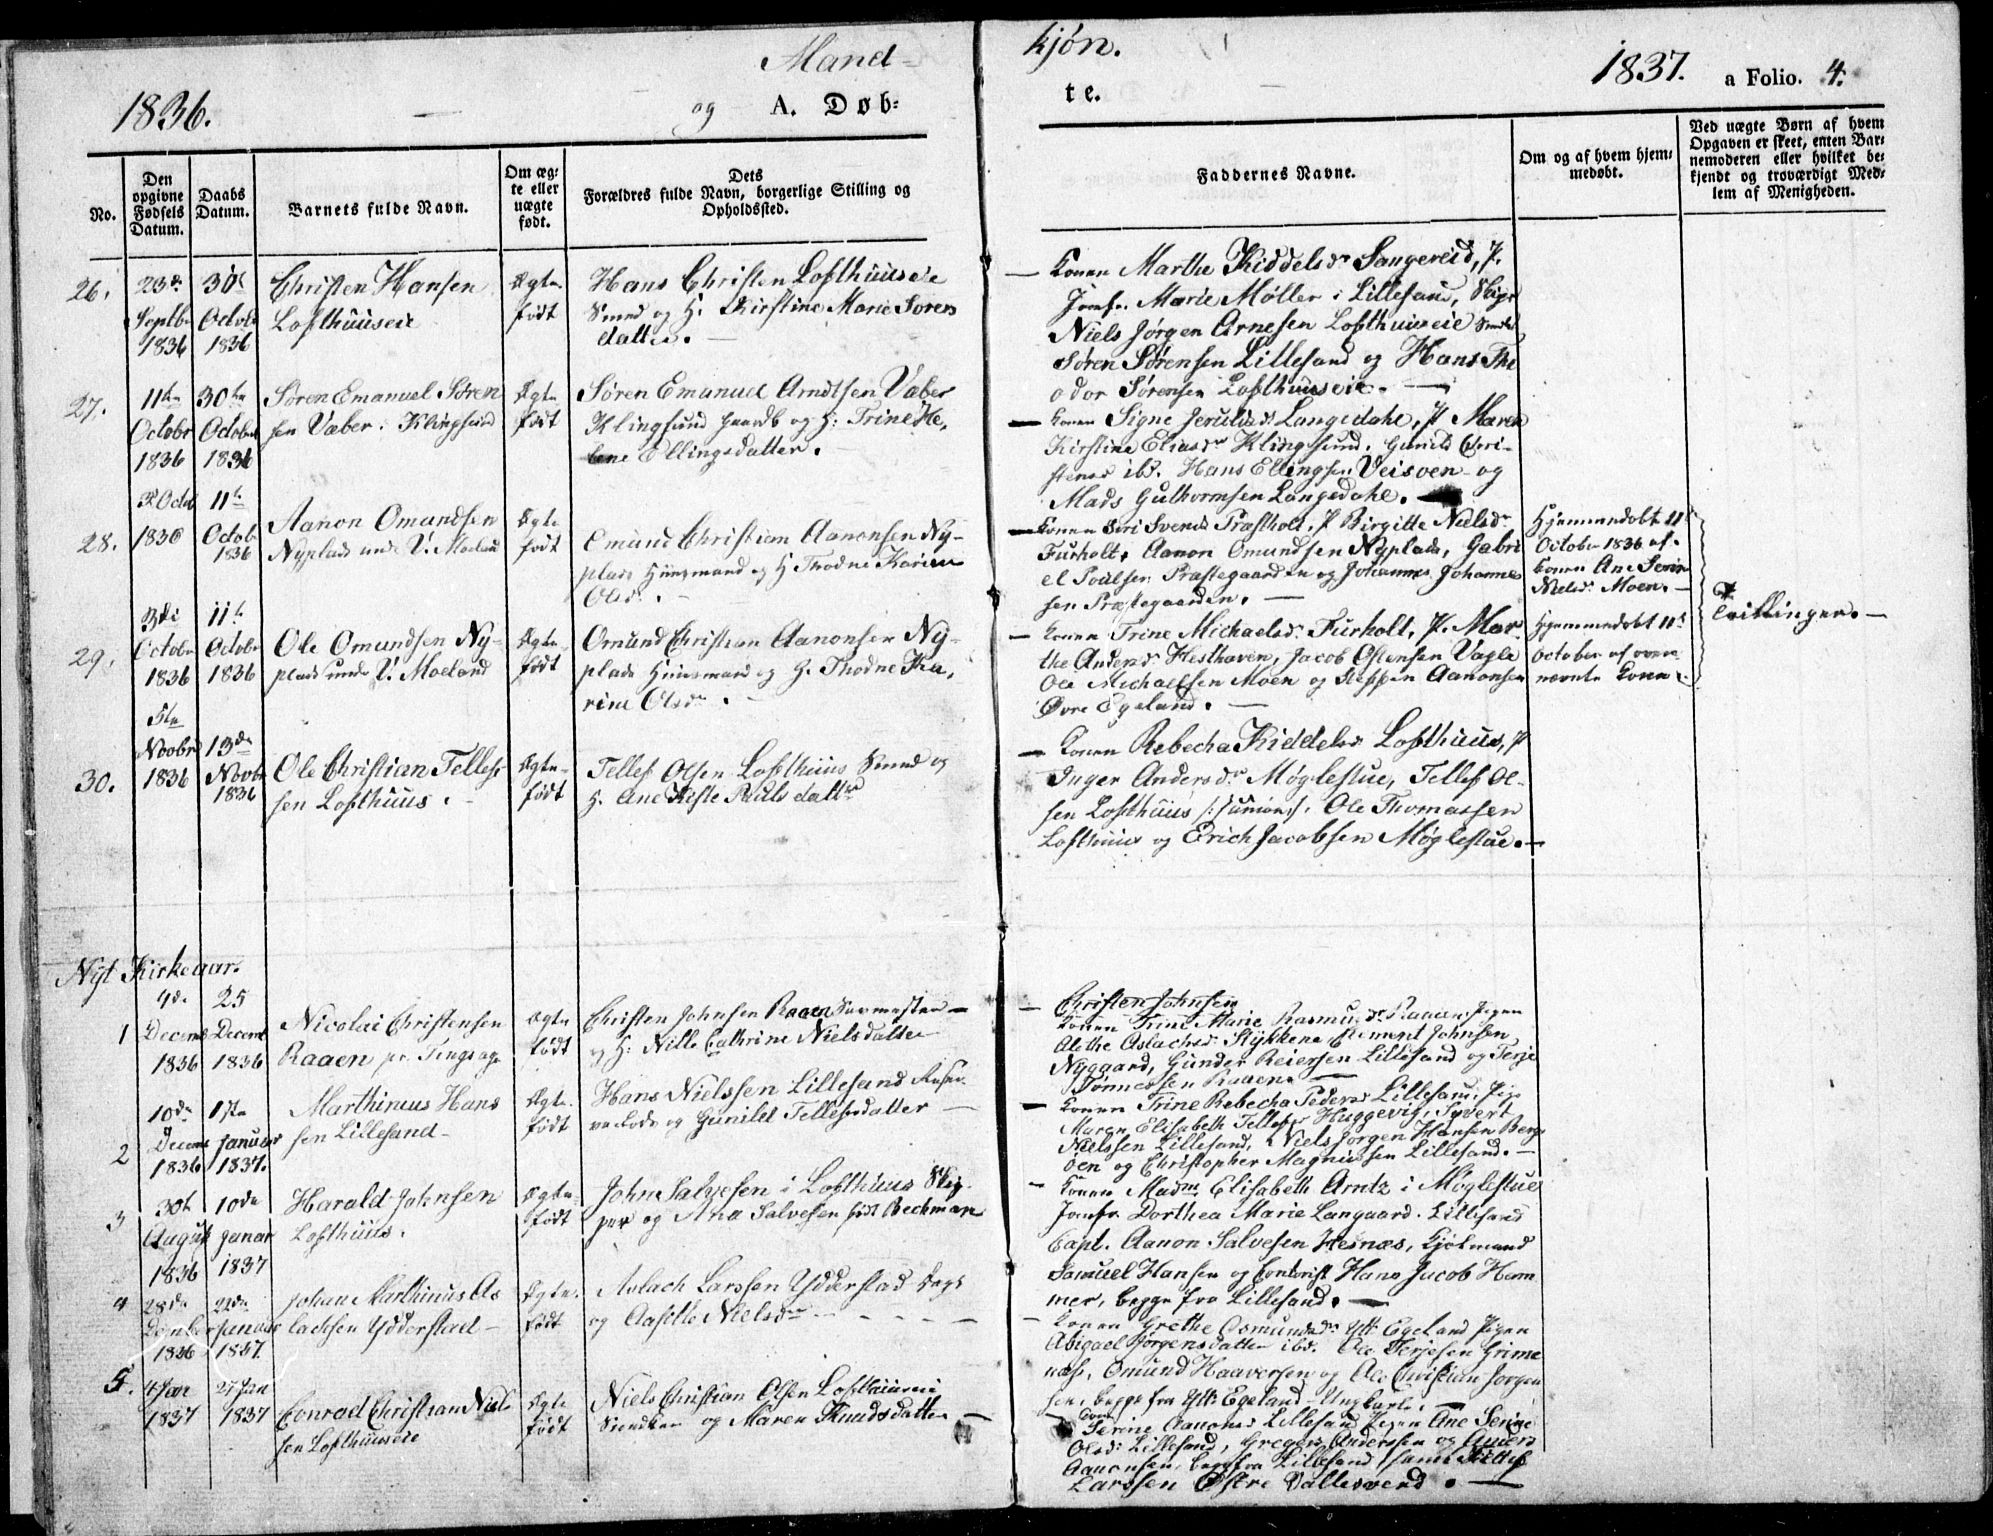 Mand-
kjøn.
1836.
og A. Døb-
te.
1837.
a Folio. 4.
No.
Den opgivne Fødsels Datum.
Daabs Datum.
Barnets fulde Navn.
Om æg-
te eller
uægte
født.
Dets
Forældres fulde Navn, borgerlige Stilling og
Opholdssted.
Faddernes Navne.
Om og af hvem hjem-
medøbt.
Ved uægte Børn af hvem
Opgaven er skeet, enten Bar-
nemoderen eller hvilket be-
kjendt og troværdigt Med-
lem af Menigheden.
26.
23de
Septbr
1836
30te
Octobr
1836
Christen Hansen
Lofthuuseie
Ægte
født
Hans Christen Lofthuuseie
Smed og H. Kirstine Marie Søren
datter.
Konen Marthe Kiddelsdr Sangereid, P.
Jomfr. Marie Møller i Lillesand,
Niels Jørgen Arnesen Lofthuuseie
Søren Sørensen Lillesand og Hans The
odor Sørensen Lofthuuseie.
27.
11te
Octobr
1836
30te
October
1836
Søren Emanuel Søren
sen Væber. Klingsund
Ægte
født
Søren Emanuel Arndtsen Væber
Klingsund og H: Trine He-
lene Ellingsdatter.
Konen Signe Langedahl, P Maren
Kirstine Eliasdr Klingsund, Gunild Chri-
stensd ibd. Hans Ellingsen Veisven og
Mads Guthormsen Langedahl.
28.
Octob
1836
11te
Octob
1836
Aanon Omundsen
Nyplads unde V. Moeland
Ægte
født
Omund Christian Aanonsen Ny-
plads Huusmand og H Thodne Karine
Olsd.
Konen Siri Svends Præstholt, P Birgitte Nielsdr
Furholt, Aanon Omundsen Nyplads, Gabri
el Poulsen Præstegaarden og Johannes Johannes
sen Præstegaarden.
Hjemmedøbt 11te
October 1836 af
Konen Ane Serine
Nielsdr Moen.
29.
3die
Octobr
1836
11te
Octobr
1836
Ole Omundsen Ny-
plads unde V. Moeland
Ægte
født
Omund Christian Aanonsen Ny-
plads Huusmand og H. Thodne Ka-
rine Olsdr.
Konen Trine Michaelsdr Furholt, P. Mar
the Andersdr Hesthaven, Jacob Ostensen Vagle
Ole Michaelsen Moen og Aanonsen
Øvre Egeland.
Hjemmedøbt 11te
October af oven
nævnte Kone
Tvillinger.
30.
5te
Novbr
1836
13de
Novbr
1836
Ole Christian Tellef
sen Lofthuus.
Ægte
født
Tellef Olsen Lofthuus Smed og
H. Ane Kiste Pouls datter
Konen Rebecha Kiddelsd Lofthuus, P
Inger Andersdr Møglestue, Tellef Ol-
sen Lofthuus /:junior:/. Ole Thomassen
Lofthuus og Erich Jacobsen Møglestue.
Nyt Kirkeaar.
1
4de
Decemb
1836
25
Decemb
1836
Nicolai Christensen
Raaen pr. Tingsage
Ægte
født
Christen Johnsen Raaen
og H: Nille Cathrine Nielsdatter
Christen Johnsen
Konen Trine Marie Rasmusdr Raaen, Pigen
Alethe Aslachsd Stykkene, Clement Johnsen
Nygaard, Gunder Reiersen Lillesand og Terje
Tønnessen Raaen.
2
10de
Decemb
1836
1ste
Januar
1837.
Marthinius Hans
sen Lillesand
Ægte
født
Hans Nielssen Lillesand
og Gunild Tellefsdatter
Konen Trine Rebecha Pedersd Lillesand, Pige
Maren Elisabeth Tellefsdr Huggevig, Syvert
Nielssen Lillesand, Niels Jørgen Hansen Berg
øen og Christopher Magnussen Lillesand.
3
30te
August
1836
10de
Januar
1837
Harald Johnsen
Lofthuus.
Ægte
født
John Salvesen i Lofthuus Skip-
per og Ana Salvesen født Bechman
Konen Madm Elisabeth Arntz i Møglestue
Jomfr Dorthea Marie Langaard. Lillesand
Capt. Aanon Salvesen Hesnæs, Kjøbmand
Samuel Hansen og Contorist Hans Jacob Ham
mer, begge fra Lillesand.
4
28de
Decmber
1836
22de
Januar
1837.
Johan Marthinus As
lachsen Ydderstad
Ægte
født
Aslach Larssen Ydderstad
og Aasille Nielsdr
Konen Grethe Osmundsdr Ytt Egeland Pigen
Abigael Jørgensdatter ibd. Ole Terjesen Grime
næs, Omund Haaversen og Ole Christian Jørgen
sen, begge fra Ytt. Egeland Ungkarle.
5.
4 Jan
1837
27 Jan
1837
Conrad Christian Niels
sen Lofthuuseie
Ægte
født
Niels Christian Olsen Lofthuuseie
Snedker og Maren Knudsdatter
Serine Aanonsd Lillesand Pigen Ane Serine
Olsd: Lillesand, Gregers Anderssen og Anders
Aanonsen, begge fra Lillesand samt Tellef
Larssen Østre Vallesverd.